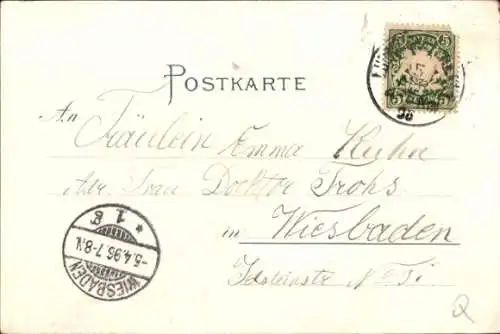 POSTKARTE
An
Fräulein Emma Kuhn
Adr. Frau Doktor Frohs
in Wiesbaden
Idsteinstr
5 5
5 5
96
* 1 g
-5.4.96.7-8.N.
WIESBADEN
Q